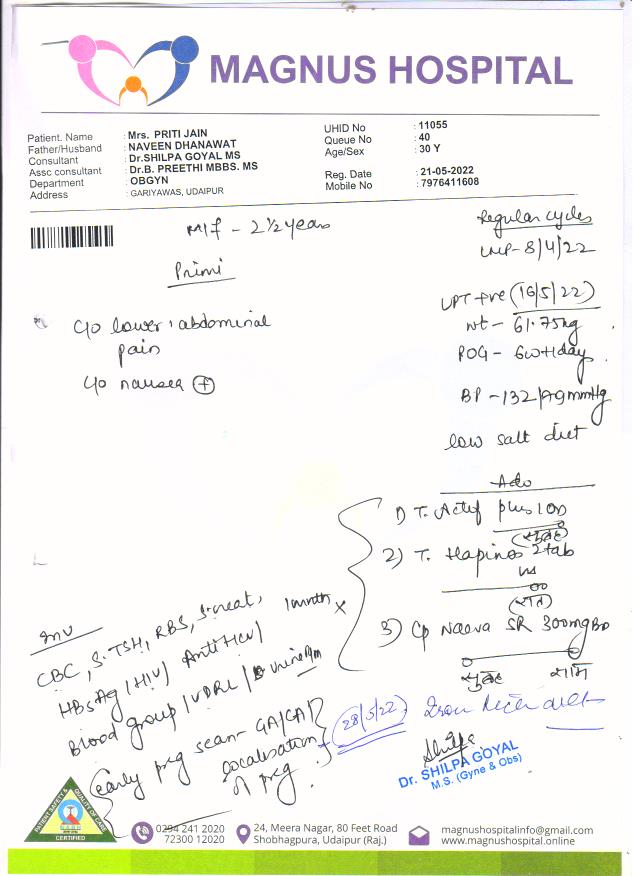 MAGNUS HOSPITAL
Patient. Name : Mrs. PRITI JAIN
Father/Husband : NAVEEN DHANAWAT
Consultant : Dr.SHILPA GOYAL MS
Assc consultant : Dr.B. PREETHI MBBS. MS
Department : OBGYN
Address : GARIYAWAS, UDAIPUR
UHID No : 11055
Queue No : 40
Age/Sex : 30 Y
Reg. Date : 21-05-2022
Mobile No : 7976411608
M/f - 2 1/2 years
Primi
c/o lower abdominal
pain
c/o nausea (+)
Regular cycles
LMP - 8/4/22
UPT +ve (16/5/22)
wt - 61.75kg
POG - 6w+1day
BP - 132/79mmHg
low salt diet
Adv
1) T. Actif plus 1 OD
(सुबह)
2) T. Hapinos 2tab
HS
(रात)
3) Cp Naeva SR 300mg BD
सुबह शाम
1 month x
Inv
CBC, S.TSH, RBS, S.creat,
HBsAg / HIV / Anti HCV /
Blood group / VDRL / Urine Rm
(early preg scan - GA/CA/
localisation
of preg.
(28/5/22)
Iron rich diet
Shilpa
Dr. SHILPA GOYAL
M.S. (Gyne & Obs)
PATIENT SAFETY & QUALITY OF CARE
CERTIFIED
0294 241 2020
72300 12020
24, Meera Nagar, 80 Feet Road
Shobhagpura, Udaipur (Raj.)
magnushospitalinfo@gmail.com
www.magnushospital.online